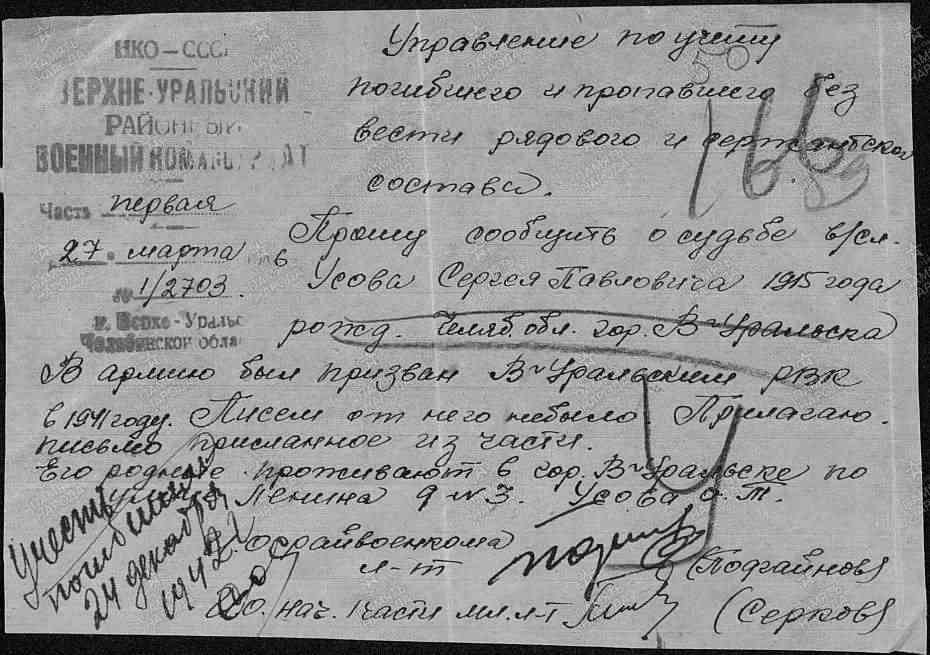 НКО – СССР
ВЕРХНЕ-УРАЛЬСКИЙ
РАЙОННЫЙ
ВОЕННЫЙ КОМИССАРИАТ
Часть первая
27 марта 6
№ 1/2703.
г. Верхне-Уральс
Челябинской обла
Управление по учету
погибшего и пропавшего без
вести рядового и сержантского
состава.
50
166
89
Прошу сообщить о судьбе в/сл.
Усова Сергея Павловича 1915 года
рожд. Челяб. обл. гор. В-Уральска
В армию был призван В-Уральским РВК
в 1941 году. Писем от него небыло. Прилагаю
письмо присланное из части.
Его родные проживают в гор. В-Уральске по
Ленина д №3. Усова О.Т.
райвоенкома
л-т (Подгайнов)
нач. I части мл. л-т (Серков)
Учесть
погибшим
24 декабря
1942 г